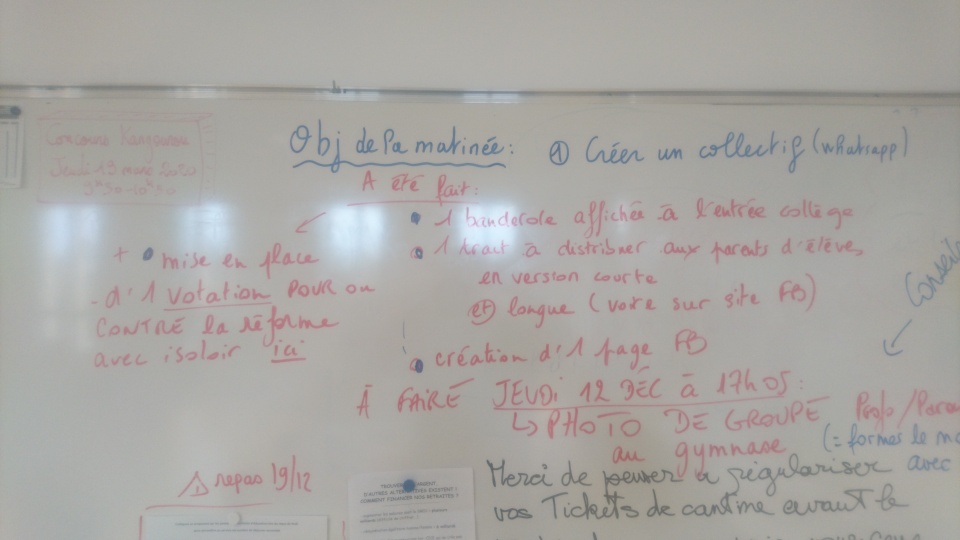 Concours Kangourou
Jeudi 19 mars 2020
9h30-10h30
Obj de la matinée : ① Créer un collectif (whatsapp)
A été fait :
• 1 banderole affichée à l'entrée collège
• 1 tract à distribuer aux parents d'élèves
en version courte
et longue (voire sur site FB)
• création d'1 page FB
+ • mise en place
- d'1 votation POUR ou
CONTRE la réforme
avec isoloir ici
Conseils
À FAIRE JEUDI 12 DÉC à 17h05 :
↳ PHOTO DE GROUPE Profs/Paren
au gymnase (= formes le mo
avec
⚠ repas 19/12
D'AUTRES ALTERNATIVES EXISTENT !
COMMENT FINANCER NOS RETRAITES ?
Merci de penser à régulariser
vos Tickets de cantine avant le